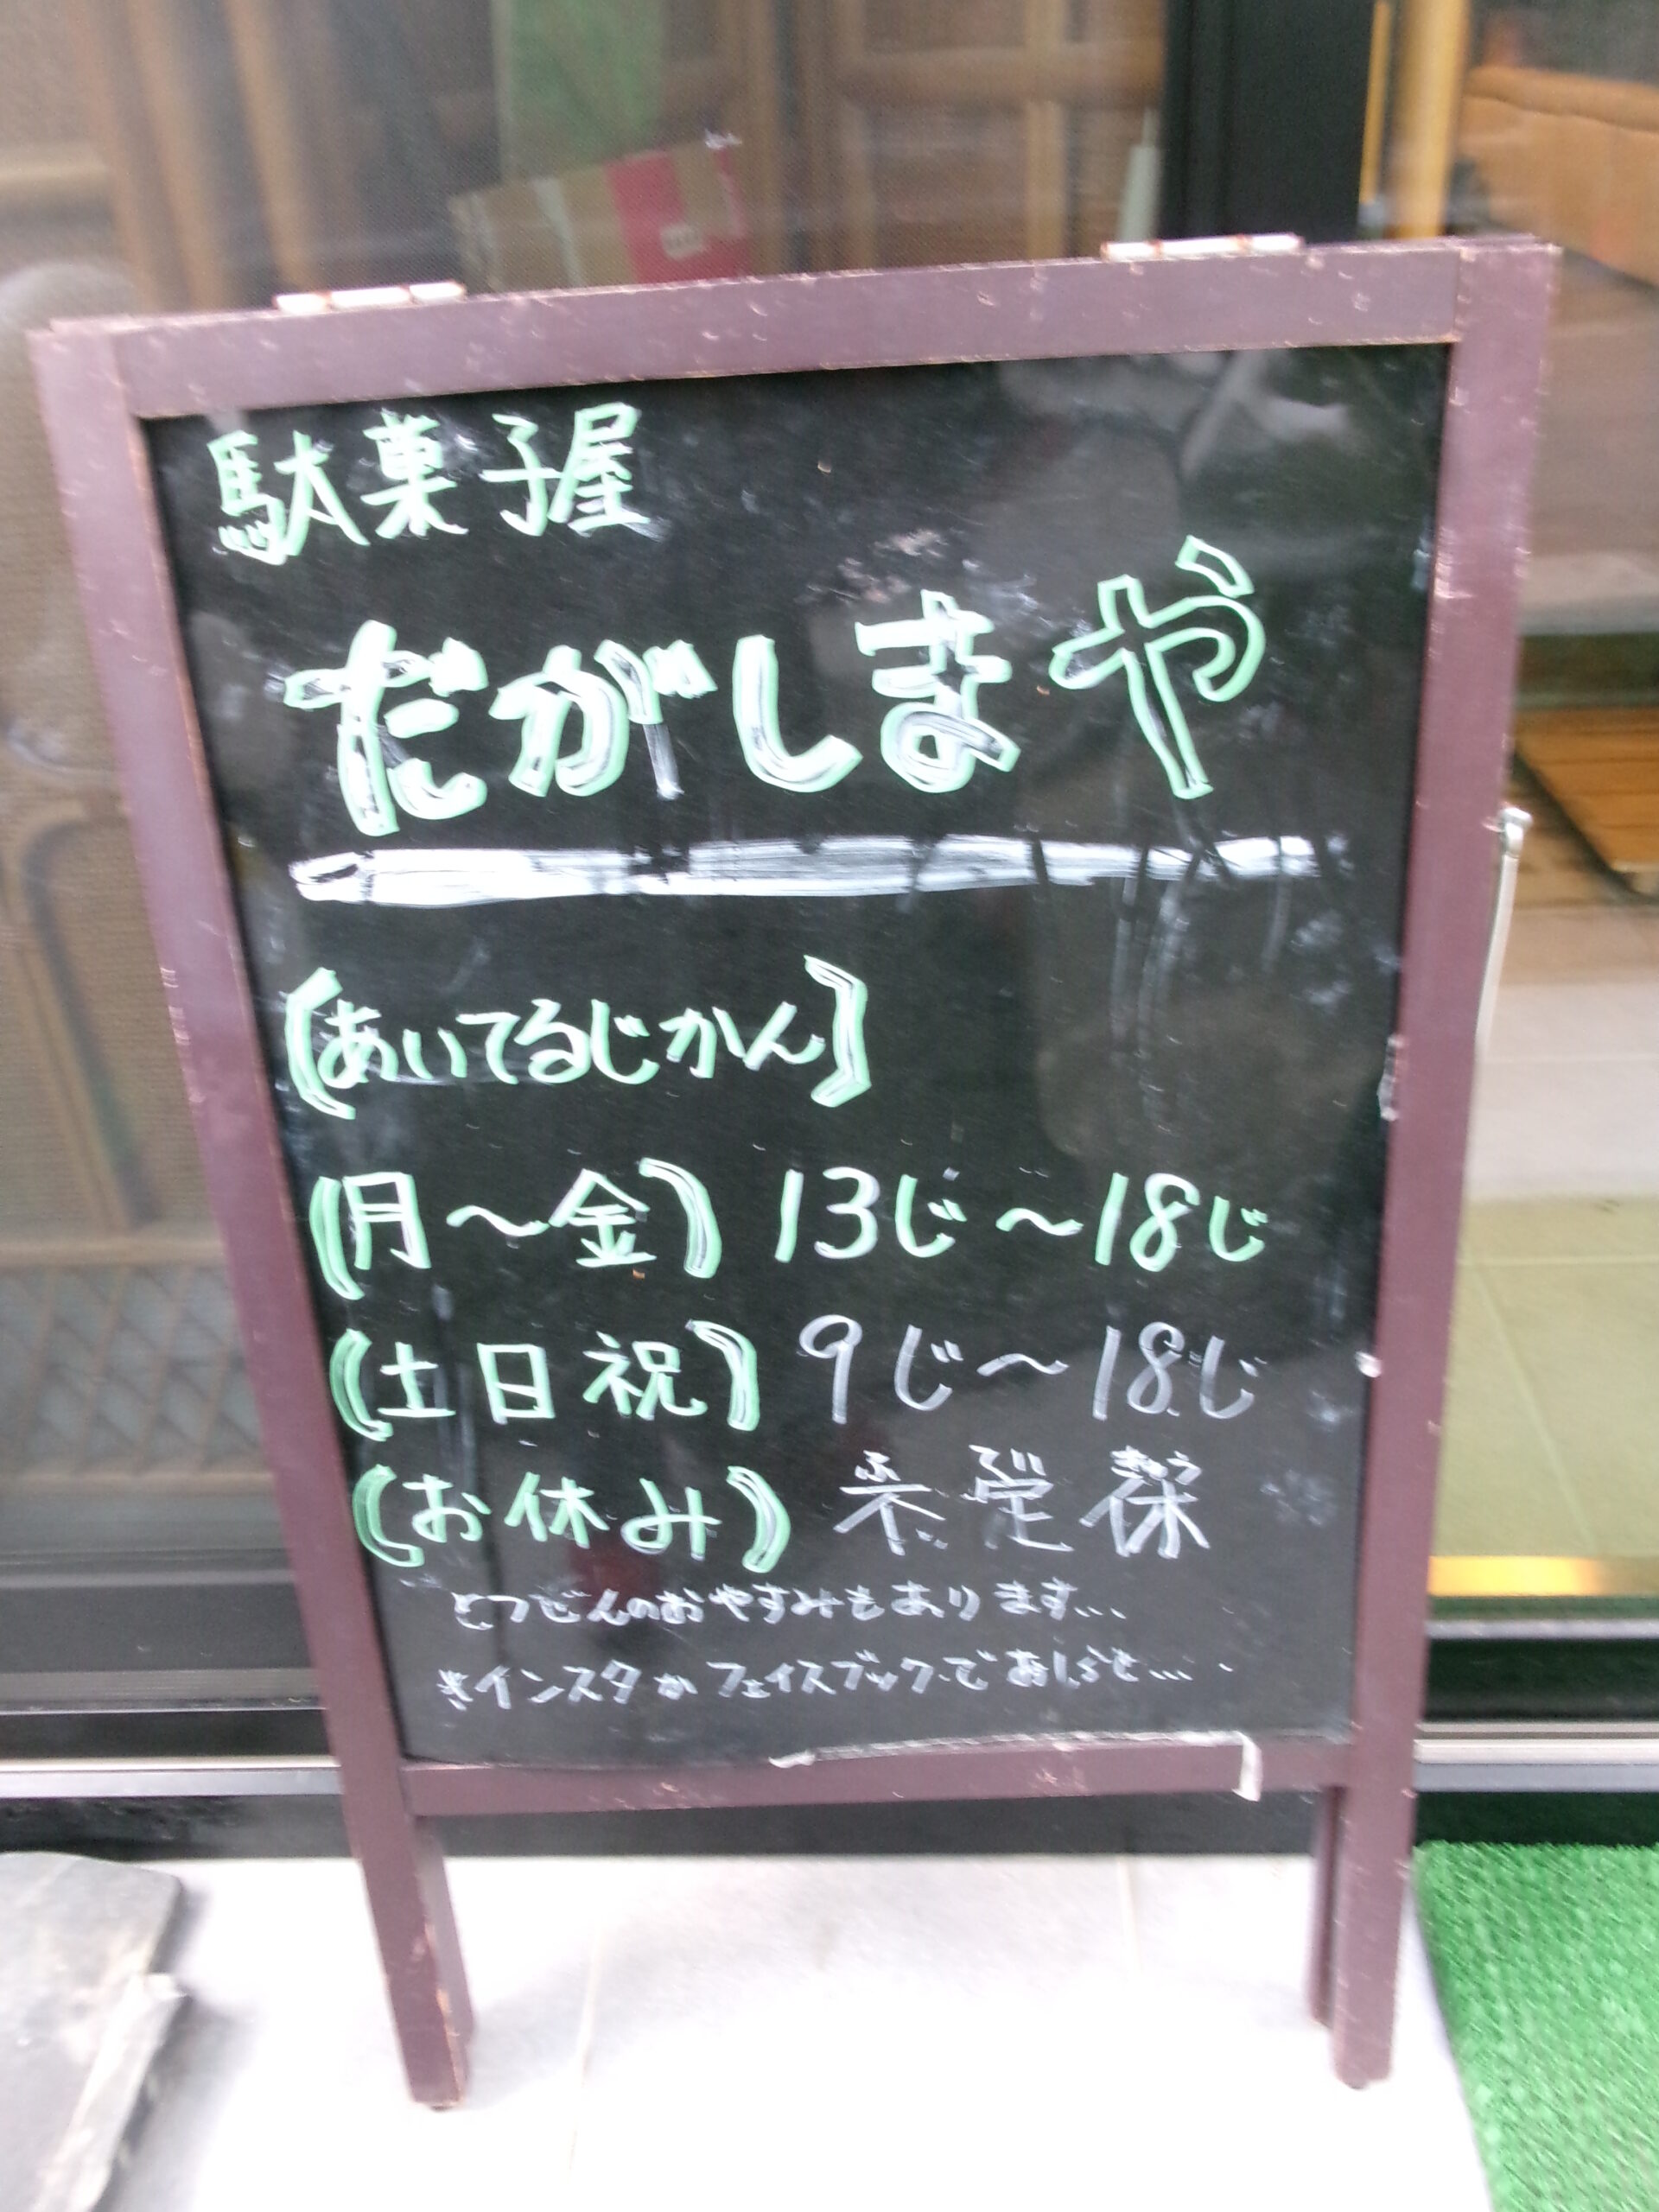 駄菓子屋
だがしまや
(あいてるじかん)
(月〜金) 13じ〜18じ
(土日祝) 9じ〜18じ
(お休み)
とつぜんのおやすみもあります...
※インスタかフェイスブックで